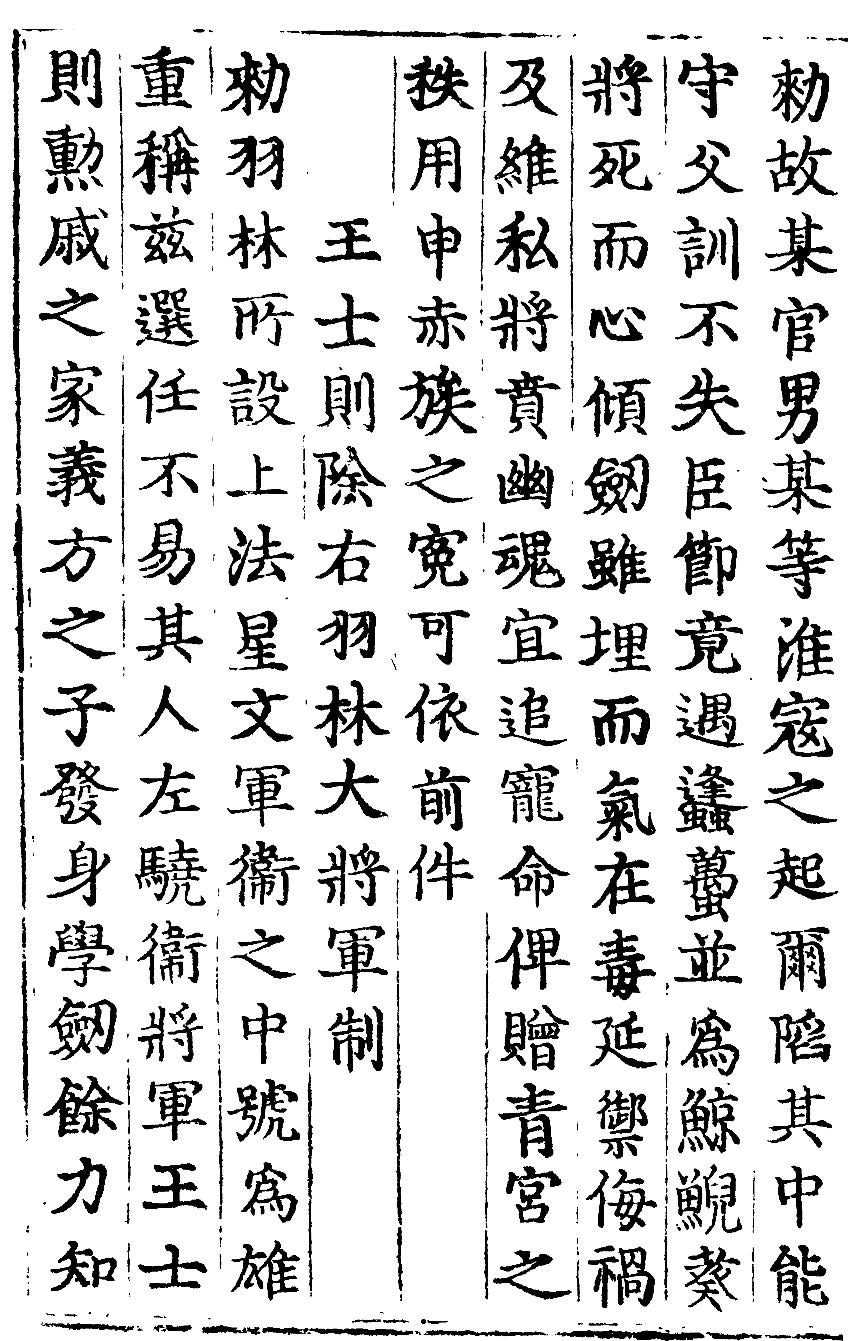 勑故某官男某等淮寇之起爾陷其中能
守父訓不失臣節竟遇蠭蠆並爲鯨鯢葵
將死而心傾劒雖埋而氣在毒延禦侮禍
及維私將賁幽魂宜追寵命俾贈青宮之
秩用申赤族之寃可依前件
王士則除右羽林大將軍制
勑羽林所設上法星文軍衞之中號爲雄
重稱兹選任不易其人左驍衞將軍王士
則勲戚之家義方之子發身學劒餘力知